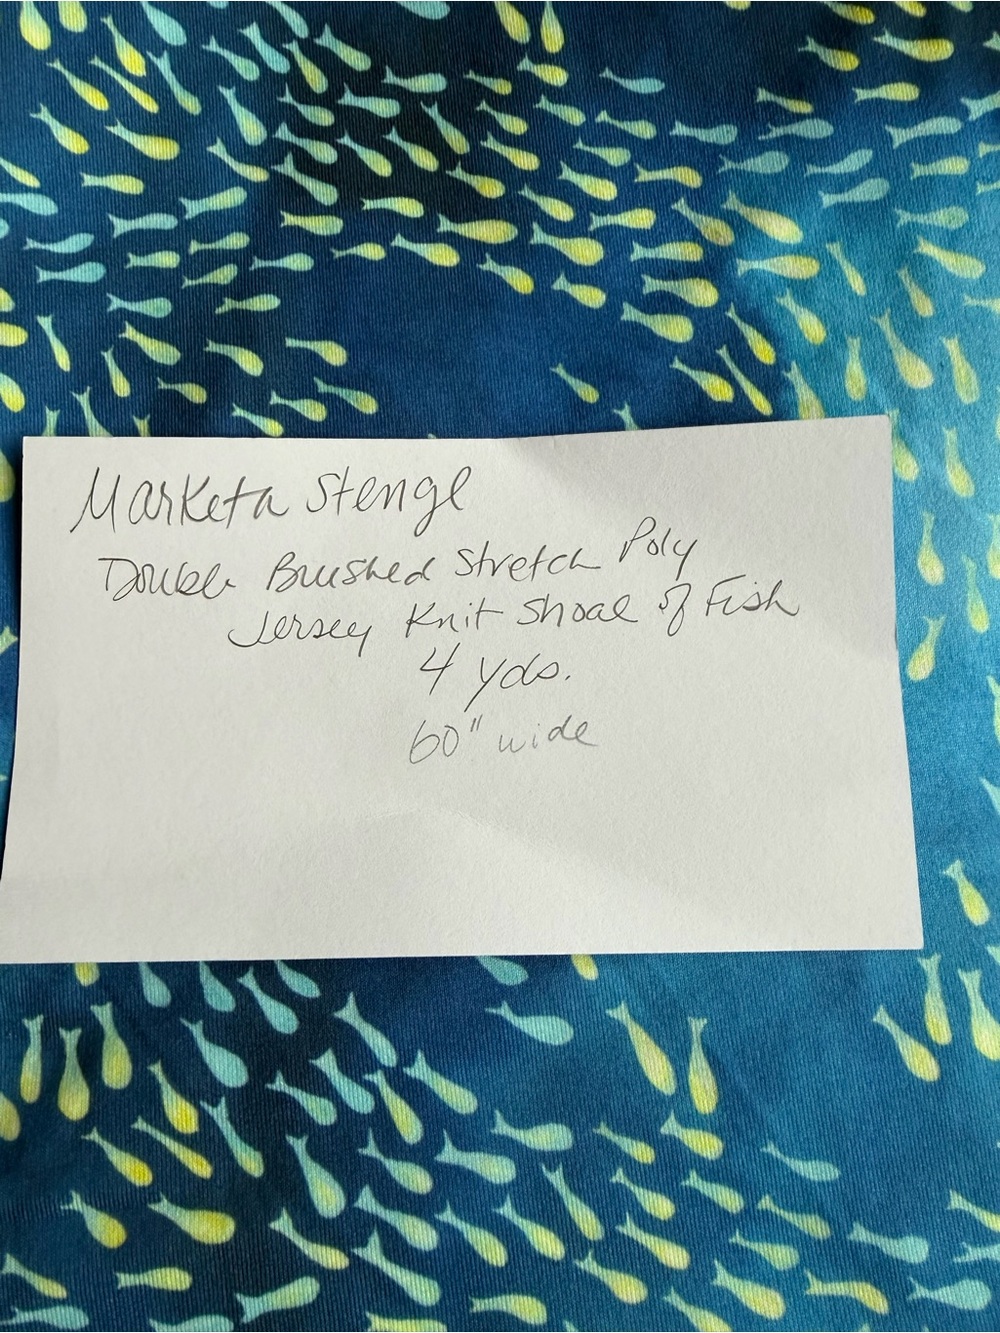 Marketa Stengl
Double Brushed Stretch Poly
Jersey Knit Shoal of Fish
4 yds.
60" wide